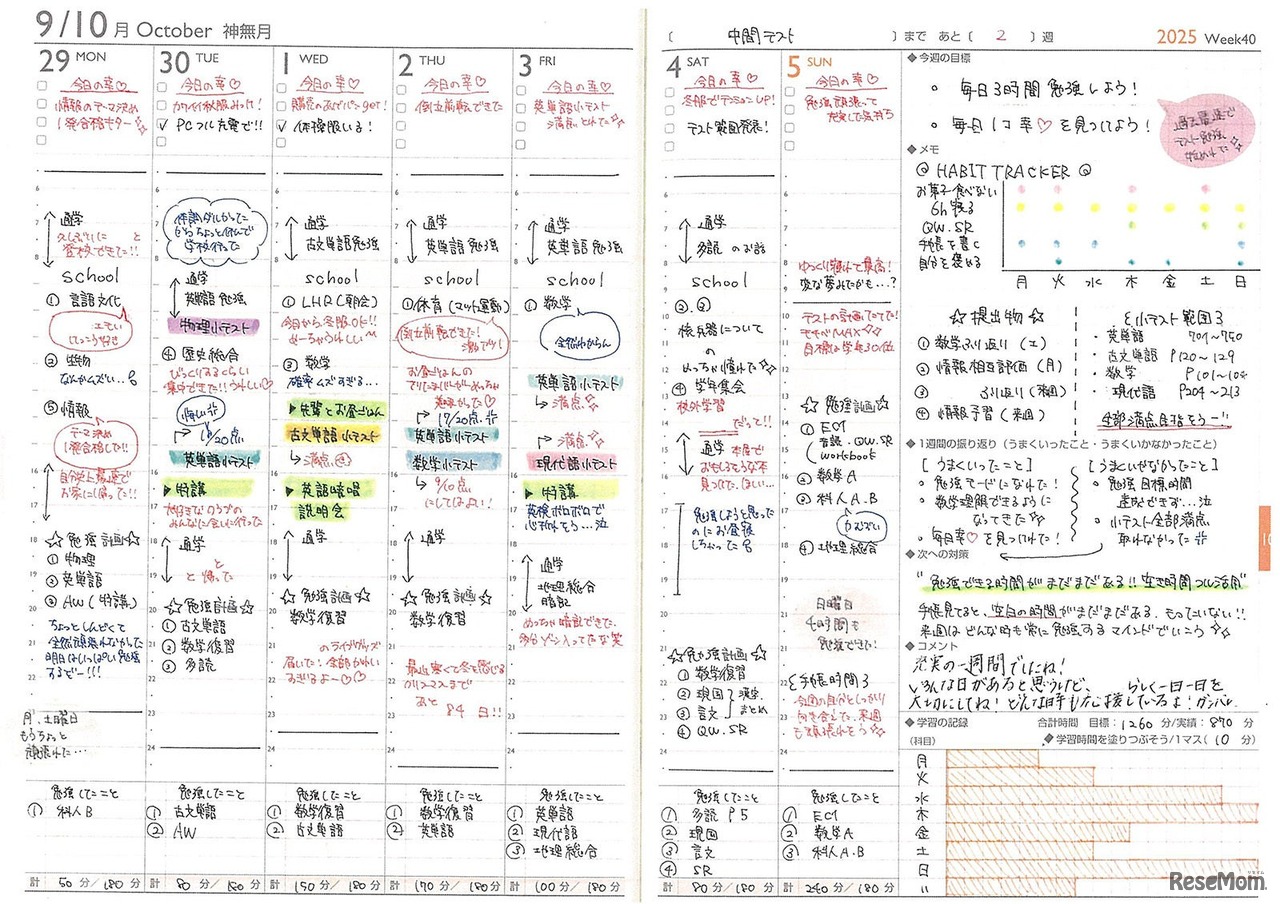 9/10月 October 神無月
29 MON
今日の幸♡
情報のテーマ決め
1発合格キター
6
7
8
通学
登校できた!!
school
① 言語文化
エモい
けっこう好き
② 生物
なんかムズい…
⑤ 情報
テーマ決め
1発合格した!!
自分史上最速で
お家に帰った!!
☆勉強計画☆
① 物理
② 英単語
③ AW(特講)
ちょっとしんどくて
全然頑張れなかった
明日はいっぱい勉強
するぞー!!!
月、土曜日
もうちょっと
頑張れた…
勉強したこと
① 科人B
計 50分/180分
30 TUE
今日の幸♡
カワイイ秋服みっけ!
✓ PCフル充電で!!
体調ダルかった
からちょっと休んで
学校行った
通学
英単語 勉強
物理小テスト
④ 歴史総合
びっくりするくらい
集中できた!!うれしい♡
悔しい
英単語小テスト
▶特講
みんなに会いに行った
通学
と帰った
☆勉強計画☆
① 古文単語
② 数学復習
③ 多読
勉強したこと
① 古文単語
② AW
計 80分/180分
1 WED
今日の幸♡
✓ 体操服いる!
通学
古文単語勉強
school
① LHR(朝会)
今日から、冬服OK!!
めーちゃうれしい〜
③ 数学
確率ムズすぎる…
▶先輩とお昼ごはん
古文単語小テスト
↳満点
▶英語暗唱
説明会
通学
☆勉強計画☆
数学復習
のライブグッズ
届いた!全部かわい
すぎるよ〜♡♡
勉強したこと
① 数学復習
② 古文単語
計 150分/180分
2 THU
今日の幸♡
倒立前転できた
通学
英単語 勉強
school
① 体育(マット運動)
倒立前転できた!
お昼ごはんの
17/20点
英単語小テスト
数学小テスト
↳9/10点
にしては良い!
通学
☆勉強計画☆
数学復習
最近寒くて冬を感じる
クリスマスまで
あと
84日!!
勉強したこと
① 数学復習
② 英単語
計 170分/180分
3 FRI
今日の幸♡
英単語小テスト
満点とれた
通学
英単語 勉強
school
① 数学
全然わからん
英単語小テスト
↳満点
満点
現代語小テスト
▶特講
英検ボロボロで
心折れそう…泣
通学
地理総合
暗記
めっちゃ暗記できた
多分ゾーン入ってたな笑
勉強したこと
① 英単語
② 現代語
③ 地理総合
計 100分/180分
〔 中間テスト 〕まで あと〔 2 〕週
2025 Week40
4 SAT
今日の幸♡
冬服でテンションUP!
テスト範囲発表!
通学
多読 のお話
school
②.③
核兵器について
の
④ 学年集会
校外学習
だって!!
通学 本屋で
おもしろそうな本
見つけた。ほしい…
勉強しようと思った
のにお昼寝
しちゃった
☆勉強計画☆
① 数学復習
② 現国
③ 言文
漢字
まとめ
④ QW.SR
勉強したこと
① 多読 P5
② 現国
③ 言文
④ SR
計 80分/180分
5 SUN
今日の幸♡
勉強頑張って
充実した気持ち
ゆっくり寝れて最高!
変な夢みたかも…?
テストの計画たてた!
モチベMAX
目標は学年30位
☆勉強計画☆
① EC1
音読・QW.SR
workbook
② 数学A
③ 科人A.B
④ 地理総合
日曜日
4時間も
勉強できた!
手帳時間
今週の自分としっかり
向き合えた。来週
も頑張れそう
勉強したこと
① EC1
② 数学A
③ 科人A.B
計 240分/180分
◆今週の目標
○ 毎日3時間 勉強しよう!
○ 毎日1コ幸♡を見つけてよう!
過去最速で
テスト勉強
始めれた
◆メモ
HABIT TRACKER
お菓子食べない
6h寝る
QW.SR
手帳を書く
自分を褒める
月 火 水 木 金 土 日
☆提出物☆
① 数学ふり返り(エ)
② 情報相互評価(月)
③ ふり返り(来週)
④ 情報予習(来週)
小テスト範囲
・英単語 701〜750
・古文単語 P120〜129
・数学 P101〜104
・現代語 P204〜213
全部満点目指そうー!!
◆1週間の振り返り(うまくいったこと・うまくいかなかったこと)
[うまくいったこと]
・勉強モードになれた!
・数学理解できるように
なってきた
・毎日幸♡を見つけれた!
[うまくいかなかったこと]
○ 勉強目標時間
達成できず…泣
○ 小テスト全部満点
取れなかった
◆次への対策
"勉強できる時間がまだまだある!!空き時間フル活用"
手帳見てると、空白の時間がまだまだある。もったいない!!
来週はどんな時も常に勉強するマインドでいこう
◆コメント
充実の一週間でしたね!
いろんな日があると思うけど、 らしく一日一日を
大切にしてね!どんな時も応援しているよ!ガンバレ
◆学習の記録 合計時間 目標:1260分/実績:870分
(科目)
◆学習時間を塗りつぶそう/1マス(10分)
月
火
水
木
金
土
日
ReseMom